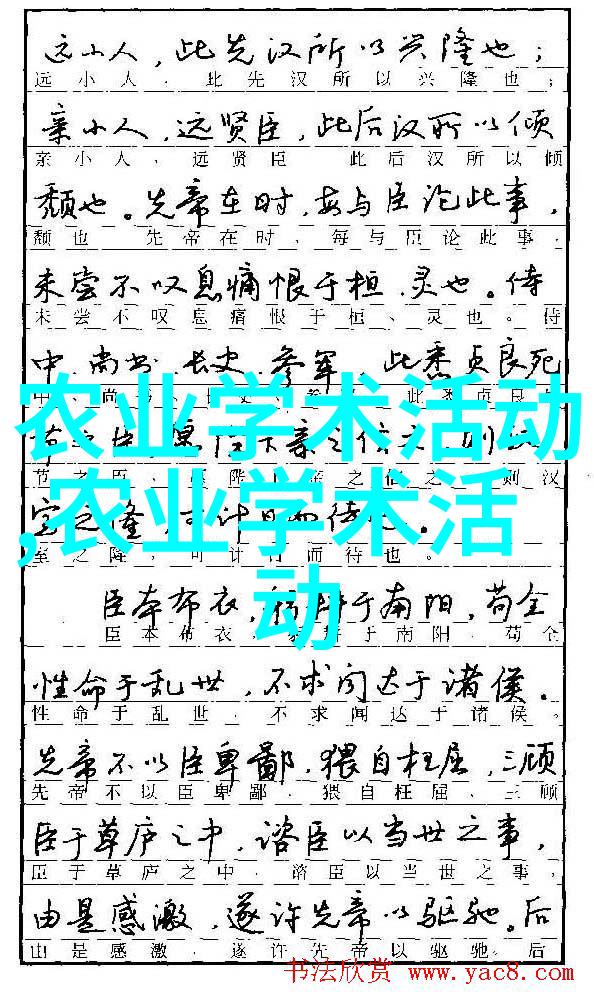 远小人，此先汉所以兴隆也；
远小人，此先汉所以兴隆也；
亲小人，远贤臣，此后汉所以倾
亲小人，远贤臣 此后汉所以倾
颓也。先帝在时，每与臣论此事，
颓也 先帝在时，每与臣论此事，
未尝不叹息痛恨于桓、灵也。侍
未尝不叹息痛恨于桓、灵也。侍
中、尚书、长史、参军，此悉贞良死
农业学术活动
,农业学术活
动
节之臣 陛 亲之信之 则汉
室之隆，可计日而待也。
室之隆，可计日而待也。
臣本布衣，躬耕于南阳，苟全
臣本布衣，躬耕于南阳，苟全
性命于乱世，不求闻达于诸侯。
性命于乱世，不求闻达于诸侯。
先帝不以臣卑鄙，猥自枉屈，三顾
先帝不以臣卑鄙，猥自枉屈、三顾
臣于草庐之中，谘臣以当世之事，
臣于草庐之中，谘臣以当世之事，
由是感激，遂许先帝以驱驰。后
由是感激，遂许先帝以驱驰。后
书法欣赏 www.yac8.com